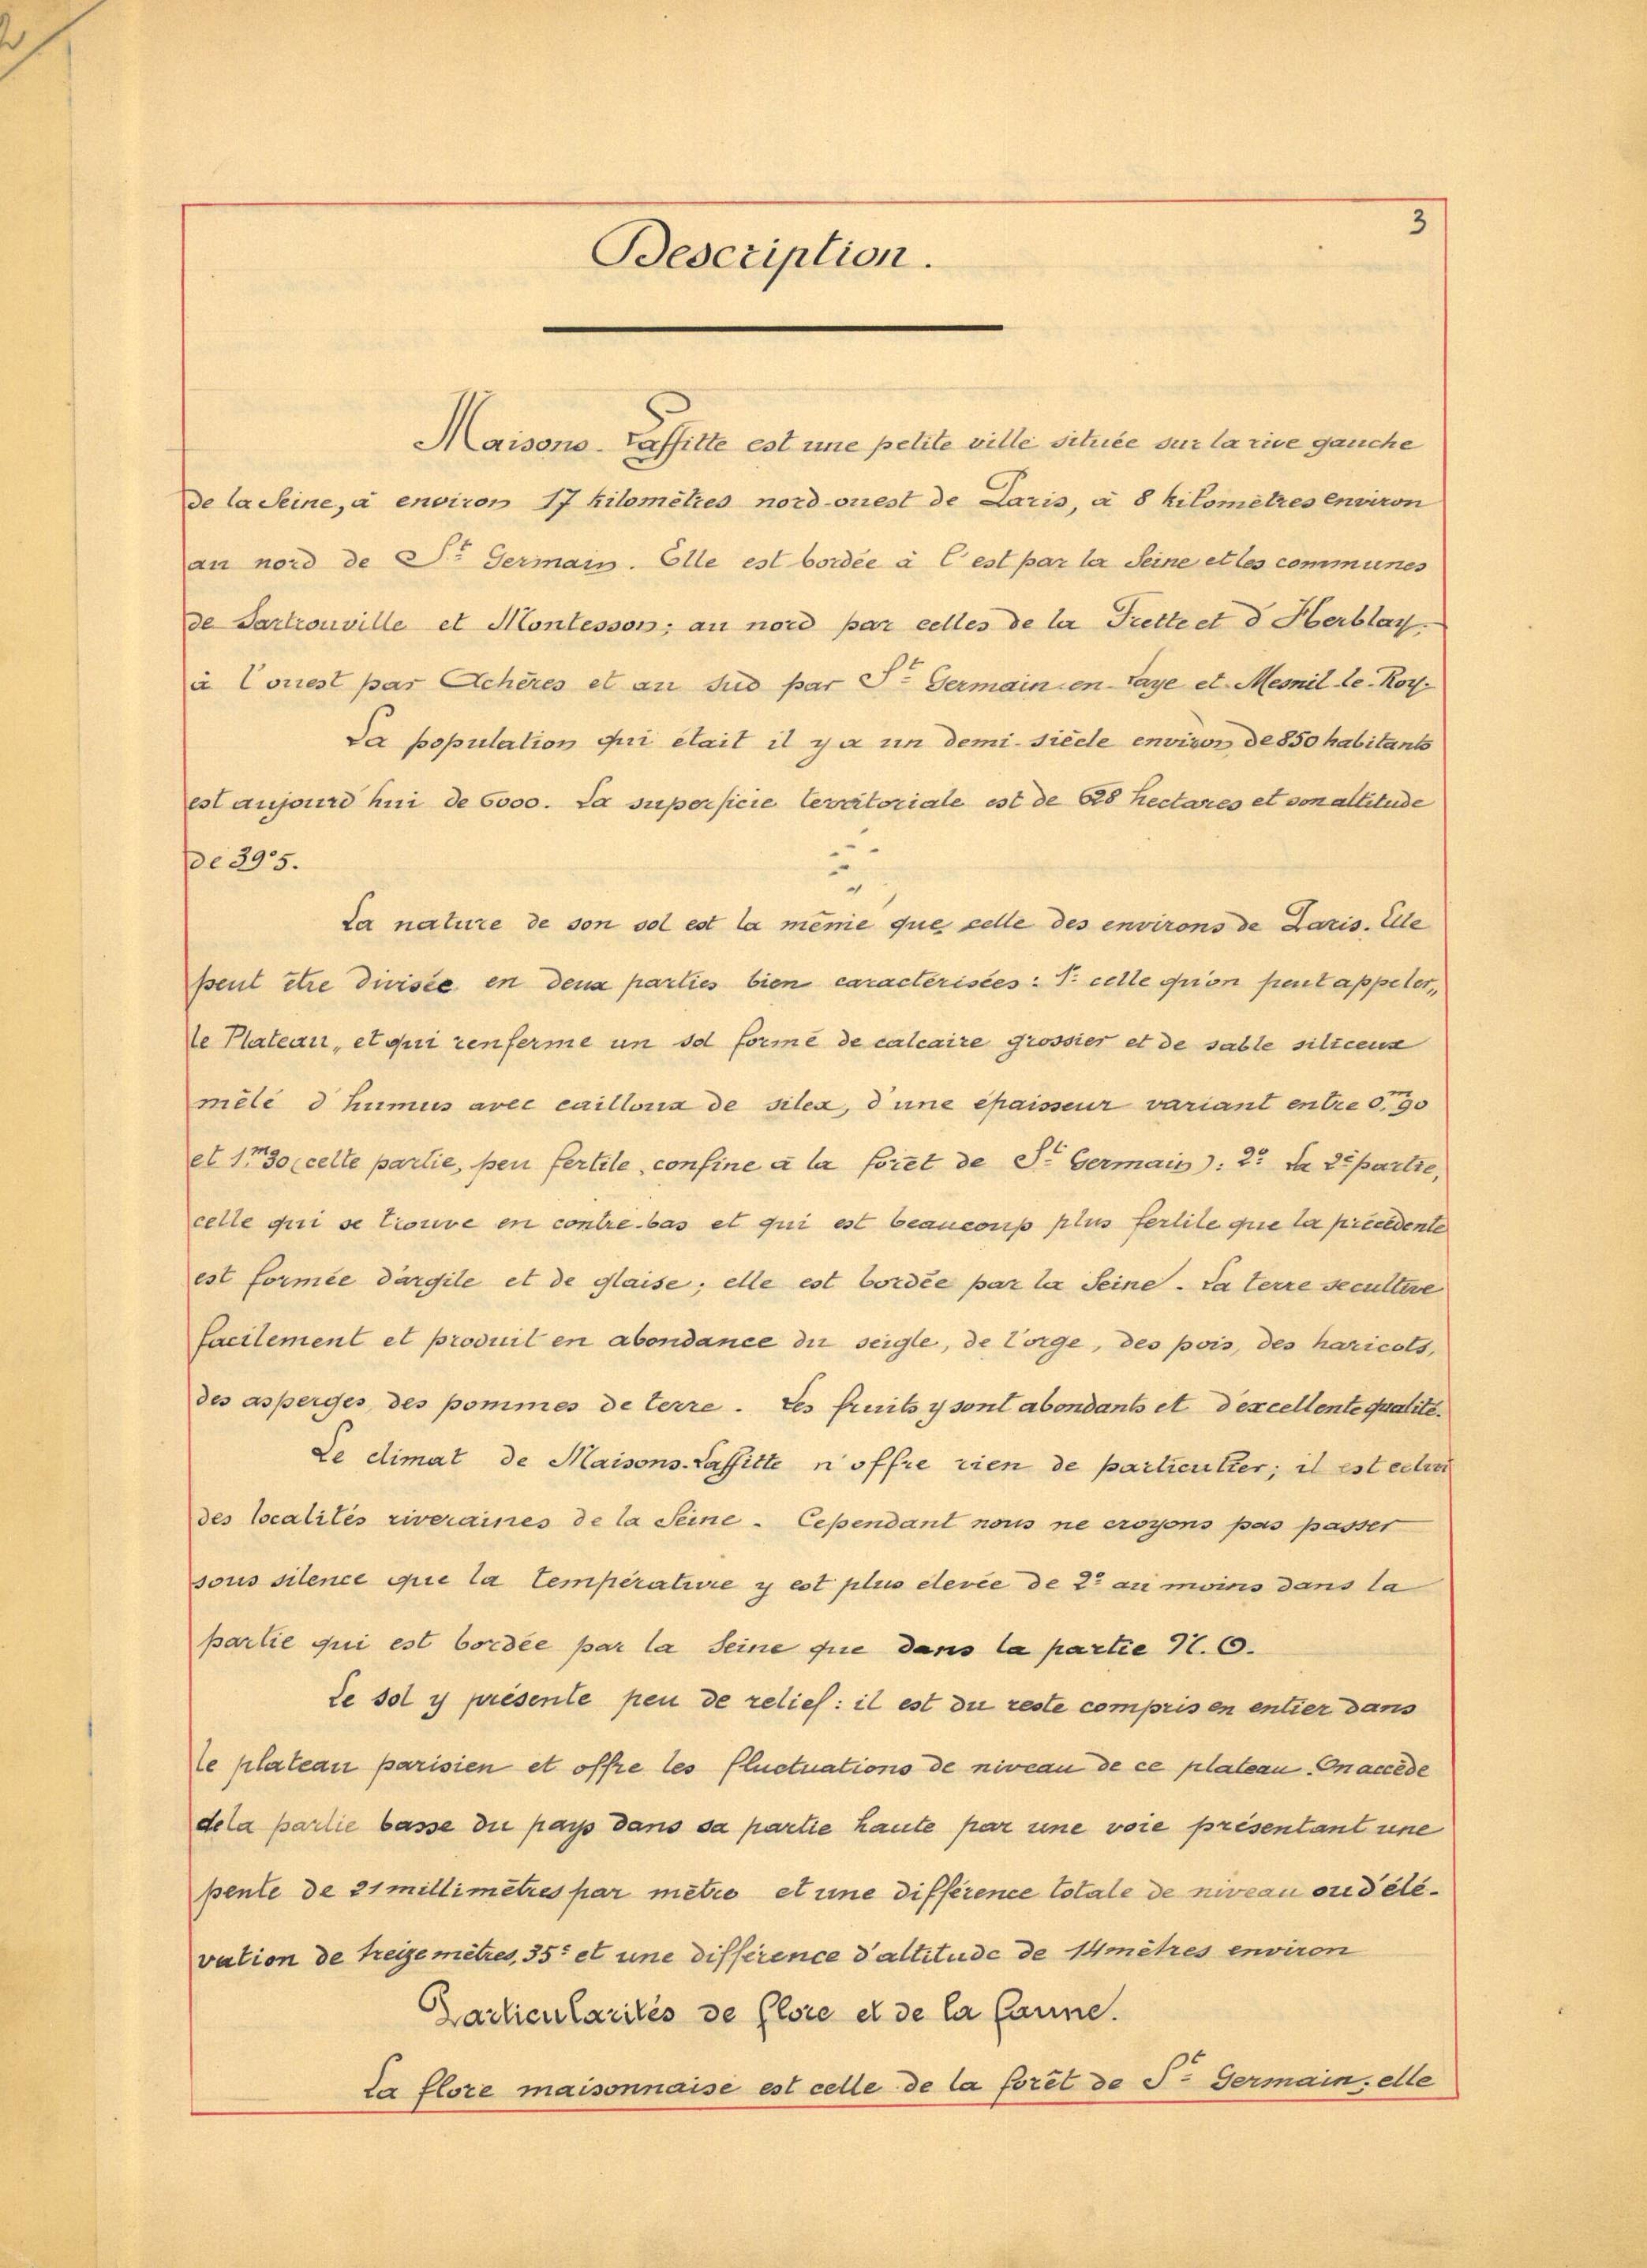 3
Description.
Maisons-Laffitte est une petite ville située sur la rive gauche
de la Seine, à environ 17 kilomètres nord-ouest de Paris, à 8 kilomètres environ
au nord de St Germain. Elle est bordée à l'est par la Seine et les communes
de Sartrouville et Montesson; au nord par celles de la Frette et d'Herblay
à l'ouest par Achères et au sud par St Germain-en-Laye et Mesnil-le-Roy.
La population qui était il y a un demi-siècle environ de 850 habitants
est aujourd'hui de 6000. La superficie territoriale est de 628 hectares et son altitude
de 39m5.
La nature de son sol est la même que celle des environs de Paris. Elle
peut être divisée en deux parties bien caractérisées : 1º celle qu'on peut appeler,,
le Plateau,, et qui renferme un sol formé de calcaire grossier et de sable siliceux
mêlé d'humus avec cailloux de silex, d'une épaisseur variant entre 0,m90
et 1,m30 (cette partie, peu fertile, confine à la forêt de St Germain): 2º La 2e partie,
celle qui se trouve en contre-bas et qui est beaucoup plus fertile que la précédente
est formée d'argile et de glaise; elle est bordée par la Seine. La terre se cultive
facilement et produit en abondance du seigle, de l'orge, des pois, des haricots,
des asperges, des pommes de terre. Les fruits y sont abondants et d'excellente qualité.
Le climat de Maisons-Laffitte n'offre rien de particulier; il est celui
des localités riveraines de la Seine. Cependant nous ne croyons pas passer
sous silence que la température y est plus élevée de 2º au moins dans la
partie qui est bordée par la Seine que dans la partie N.O.
Le sol y présente peu de relief: il est du reste compris en entier dans
le plateau parisien et offre les fluctuations de niveau de ce plateau. On accède
de la partie basse du pays dans sa partie haute par une voie présentant une
pente de 21 millimètres par mètre et une différence totale de niveau ou d'élé-
vation de treize mètres, 35c et une différence d'altitude de 14 mètres environ
Particularités de flore et de la faune.
La flore maisonnaise est celle de la forêt de St Germain; elle